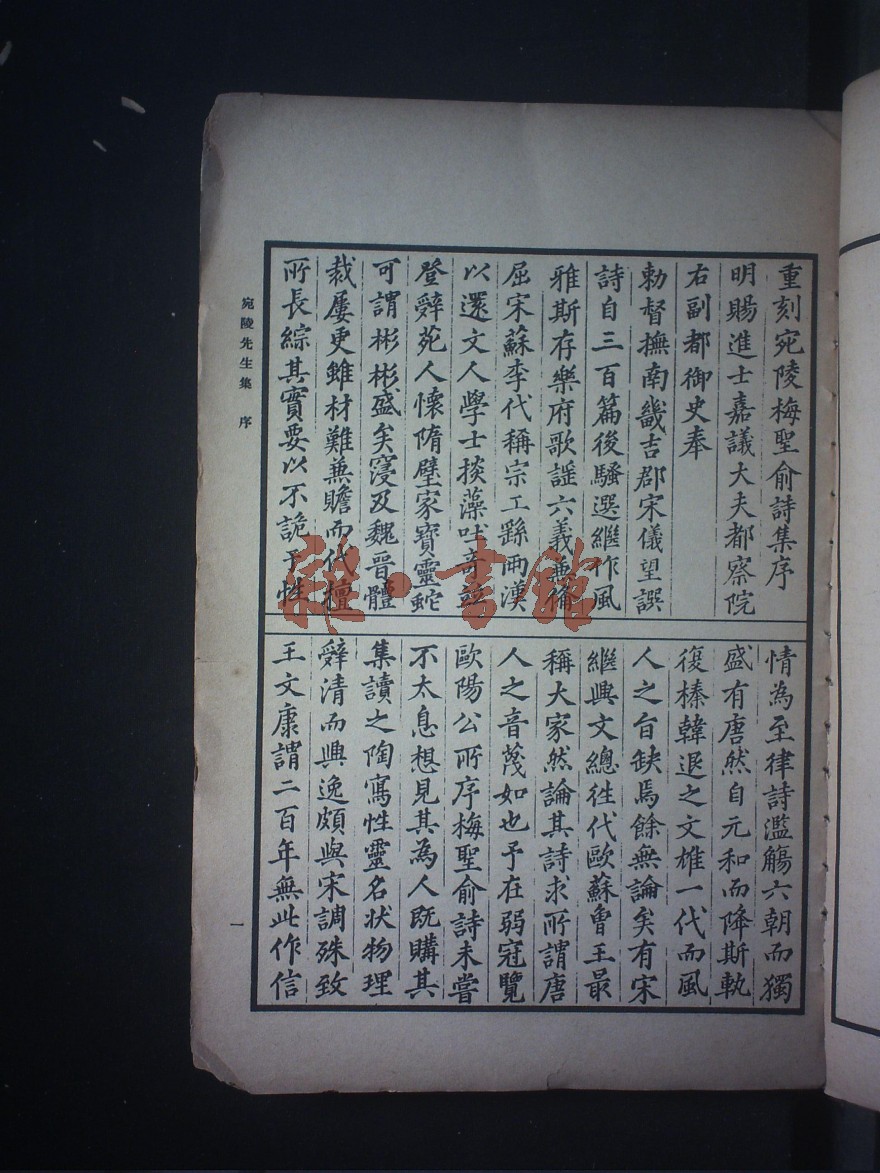 重刻宛陵梅聖俞詩集序
明賜進士嘉議大夫都察院
右副都御史奉
勅督撫南畿吉郡宋儀望譔
詩自三百篇後騷選繼作風
雅斯存樂府歌謡六義兼備
屈宋蘇李代稱宗工繇兩漢
以還文人學士掞藻吐奇競
登辭苑人懷隋璧家寶靈蛇
可謂彬彬盛矣寖及魏晉體
裁屢更雖材難兼贍而代擅
所長綜其實要以不詭于性
情為至律詩濫觴六朝而獨
盛有唐然自元和而降斯軌
復榛韓退之文雄一代而風
人之旨缺焉餘無論矣有宋
繼興文總徃代歐蘇曾王最
稱大家然論其詩求所謂唐
人之音蔑如也予在弱冠覽
歐陽公所序梅聖俞詩未嘗
不太息想見其為人既購其
集讀之陶寫性靈名状物理
辭清而興逸頗與宋調殊致
王文康謂二百年無此作信
宛陵先生集 序
一
雜·書館